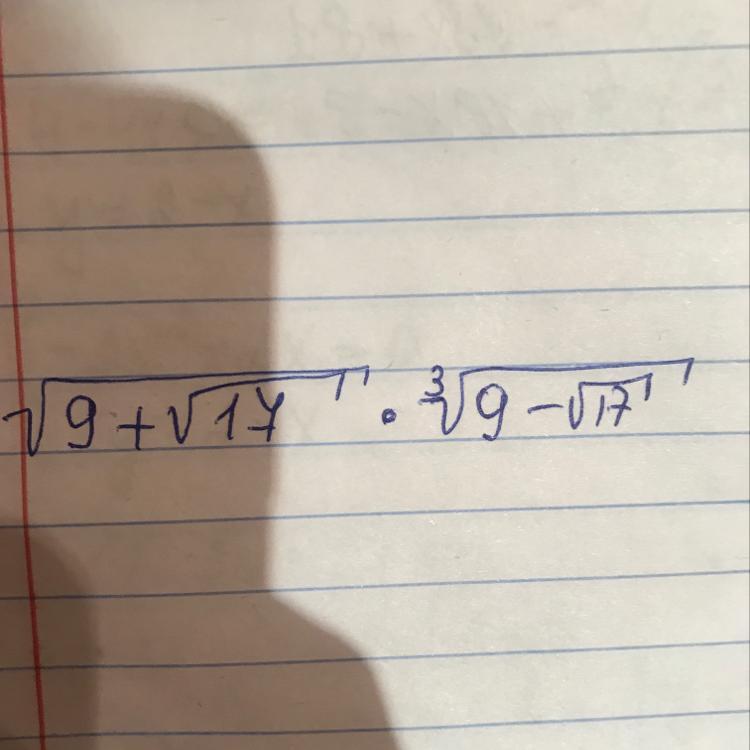 √(9 + √17) · ³√(9 − √17)